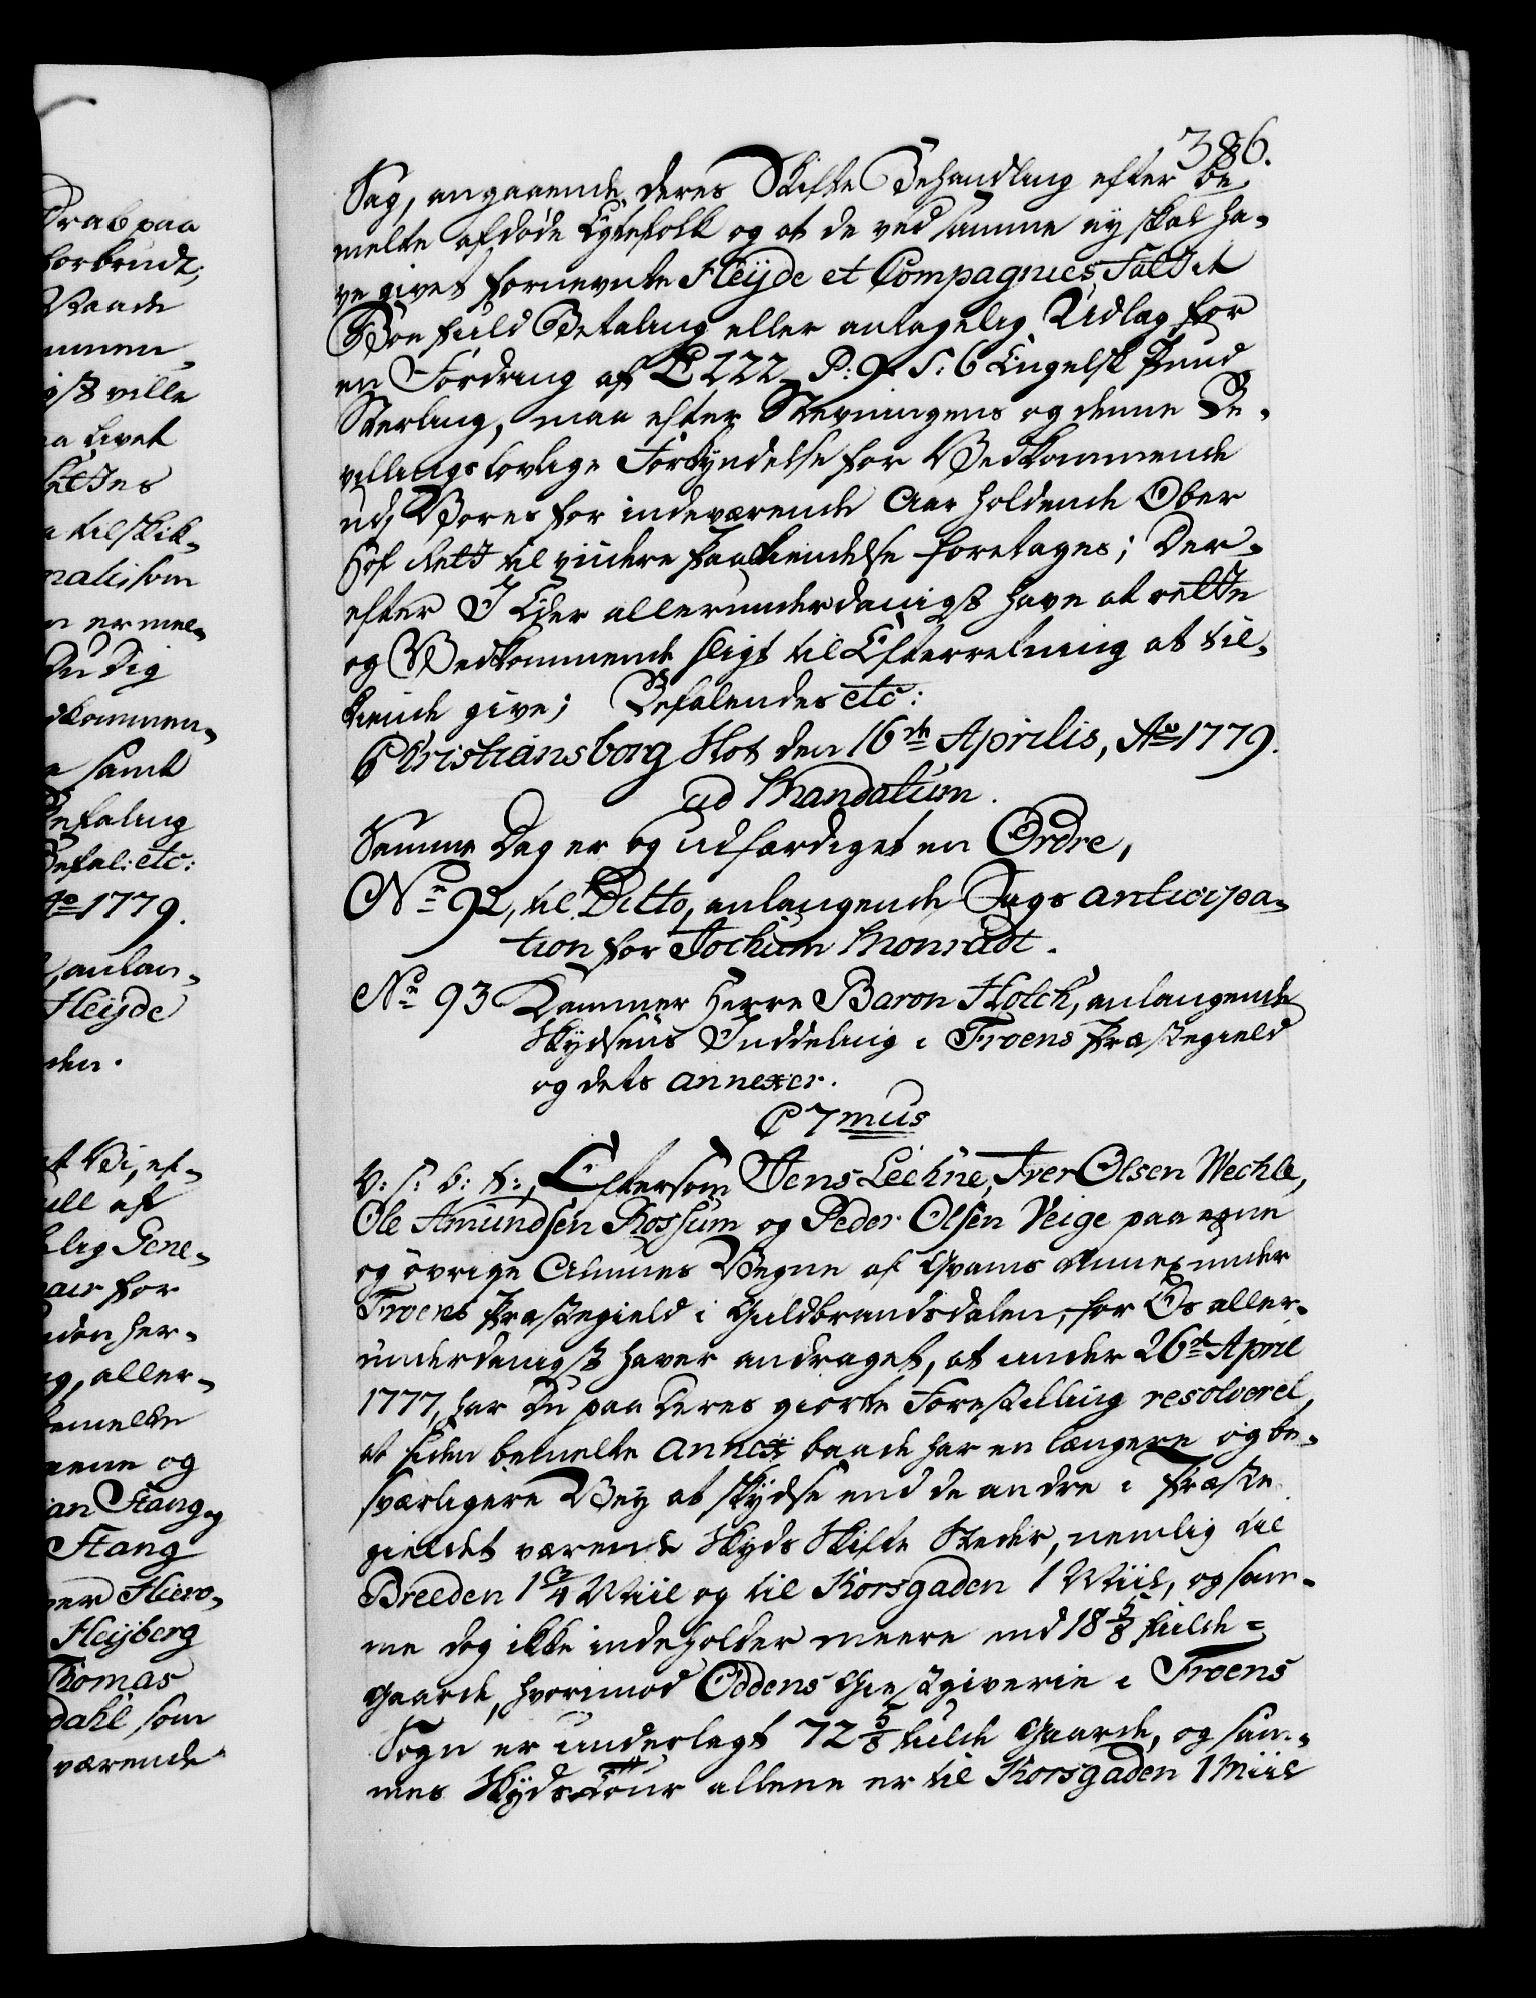 386.
Sag, angaaende deres Skifte Behandling efter be-
melte afdøde Egtefolk og at de ved samme ej skal ha-
ve givet fornevnte Heijde et Compagnies Fallit
Boe fuld Betaling eller antagelig Udlag for
en Fordring af £ 222 P: 9 S: 6 Engelsk Pund
Sterling, maa efter Stevningens og denne Be-
villings lovlige Forkyndelse for Vedkommende
ved Vores for indeværende Aar holdende Ober
Hof Rett til videre Paakiendelse foretages; Der-
efter I Eder allerunderdanigst have at rette
og Vedkommende sligt til Efterretning at til-
kiende give; Befalendes etc:
Christiansborg Slot den 16de Aprilis, Ao 1779.
ad Mandatum.
Samme Dag er og udfærdiget en Ordre,
No 92, til Ditto, anlangende Sags anticipa-
tion for Jochum Monradt.
No 93 Kammer Herre Baron Holck, anlangende
Skydsens Inddeling i Froens Præstegield
og dets annexer.
C 7mus
V: S: G: T:, Eftersom Jens Leehne, Iver Olsen Wechle,
Ole Amundsen Kossum og Peder Olsen Veige paa egne
og øvrige Almues Vegne af Qvams Annex under
Froens Præstegield i Guldbrandsdalen, for Os aller-
underdanigst haver andraget, at under 26de April
1777, har Du paa deres giorte Forestilling resolveret,
at siden bemelte annex baade har en længere og be-
sværligere Vej at skydse end de andre i Præste
gieldet værende Skyds Skifte Steder, nemlig til
Breeden 1 3/4 Miil og til Korsgaden 1 Miil, og sam-
me dog ikke indeholder meere end 18 5/8 fulde
Gaarde, hvorimod Oddens Giestgiverie i Froens
Sogn er underlagt 72 5/8 fulde Gaarde, og sam-
mes Skyds Tour allene er til Korsgaden 1 Miil